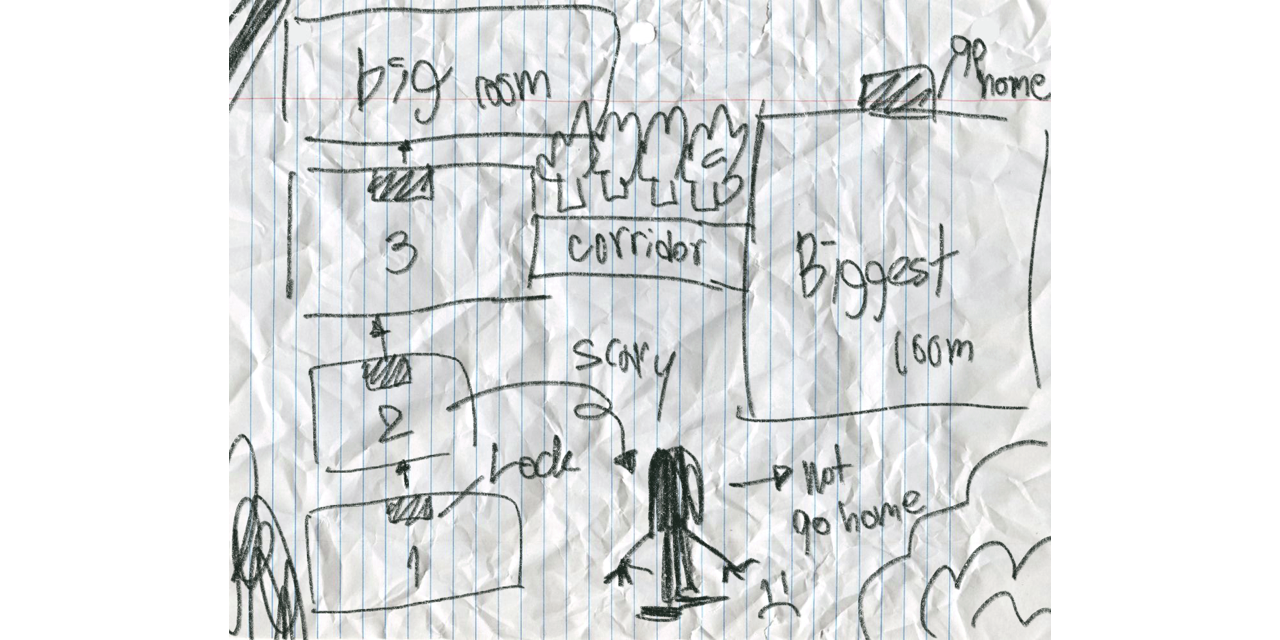 big room
go
home
3
corridor
Biggest
room
scary
2
Lock
not
go home
1